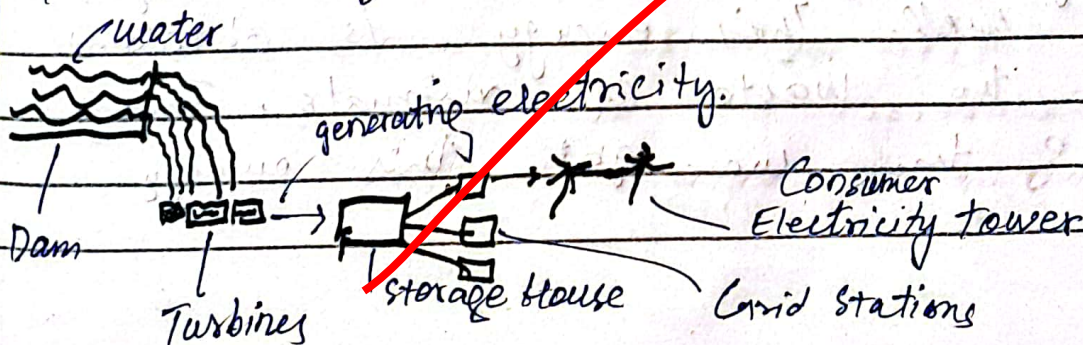 water
generating electricity.
Consumer
Electricity tower
Dam
Storage House
Grid Stations
Turbines